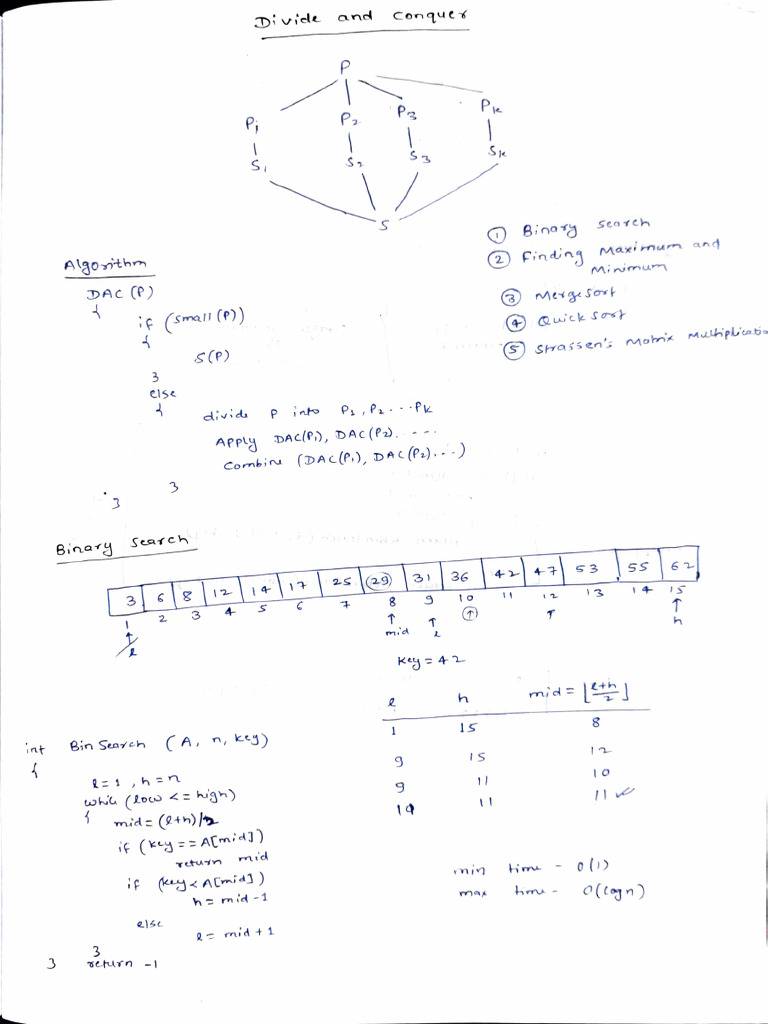 Divide and Conquer
P
P1 P2 P3 Pk
S1 S2 S3 Sk
S
① Binary search
② Finding Maximum and
Minimum
③ Mergesort
④ Quicksort
⑤ Strassen's Matrix Multiplicatio
Algorithm
DAC (P)
{
if (small (P))
{
S(P)
}
else
{ divide P into P1, P2 ... Pk
Apply DAC(P1), DAC(P2). ...
Combine (DAC(P1), DAC(P2)...)
}
}
Binary search
3 6 8 12 14 17 25 29 31 36 42 47 53 55 62
1 2 3 4 5 6 7 8 9 10 11 12 13 14 15
↑ ↑ ↑ ↑ ↑ ↑
l mid l h
key = 42
l h mid = ⌊(l+h)/2⌋
1 15 8
9 15 12
9 11 10
11 11 ✓
int BinSearch (A, n, key)
{
l=1, h=n
while (low <= high)
{ mid = (l+h)/2
if (key == A[mid])
return mid
if (key < A[mid])
h = mid-1
else
l = mid+1
}
} return -1
min time - O(1)
max time - O(logn)